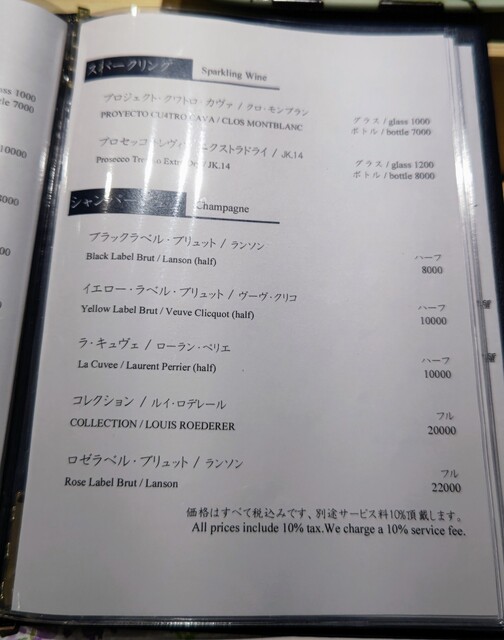 スパークリング Sparkling Wine
プロジェクト・クワトロ・カヴァ / クロ・モンブラン
PROYECTO CU4TRO CAVA / CLOS MONTBLANC
グラス / glass 1000
ボトル / bottle 7000
プロセッコ・トレヴィーゾ エクストラドライ / JK.14
Prosecco Treviso Extra Dry / JK.14
グラス / glass 1200
ボトル / bottle 8000
シャンパーニュ Champagne
ブラックラベル・ブリュット / ランソン
Black Label Brut / Lanson (half)
ハーフ
8000
イエロー・ラベル・ブリュット / ヴーヴ・クリコ
Yellow Label Brut / Veuve Clicquot (half)
ハーフ
10000
ラ・キュヴェ / ローラン・ペリエ
La Cuvee / Laurent Perrier (half)
ハーフ
10000
コレクション / ルイ・ロデレール
COLLECTION / LOUIS ROEDERER
フル
20000
ロゼラベル・ブリュット / ランソン
Rose Label Brut / Lanson
フル
22000
価格はすべて税込みです、別途サービス料10%頂戴します。
All prices include 10% tax.We charge a 10% service fee.